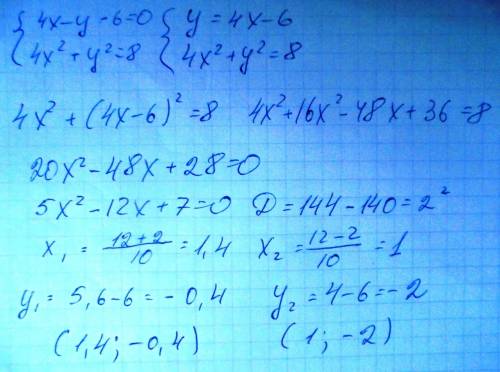 {4x-y-6=0 {y=4x-6
{4x²+y²=8 {4x²+y²=8
4x²+(4x-6)²=8 4x²+16x²-48x+36=8
20x²-48x+28=0
5x²-12x+7=0 D=144-140=2²
x₁=(12+2)/10=1,4 x₂=(12-2)/10=1
y₁=5,6-6=-0,4 y₂=4-6=-2
(1,4;-0,4) (1;-2)